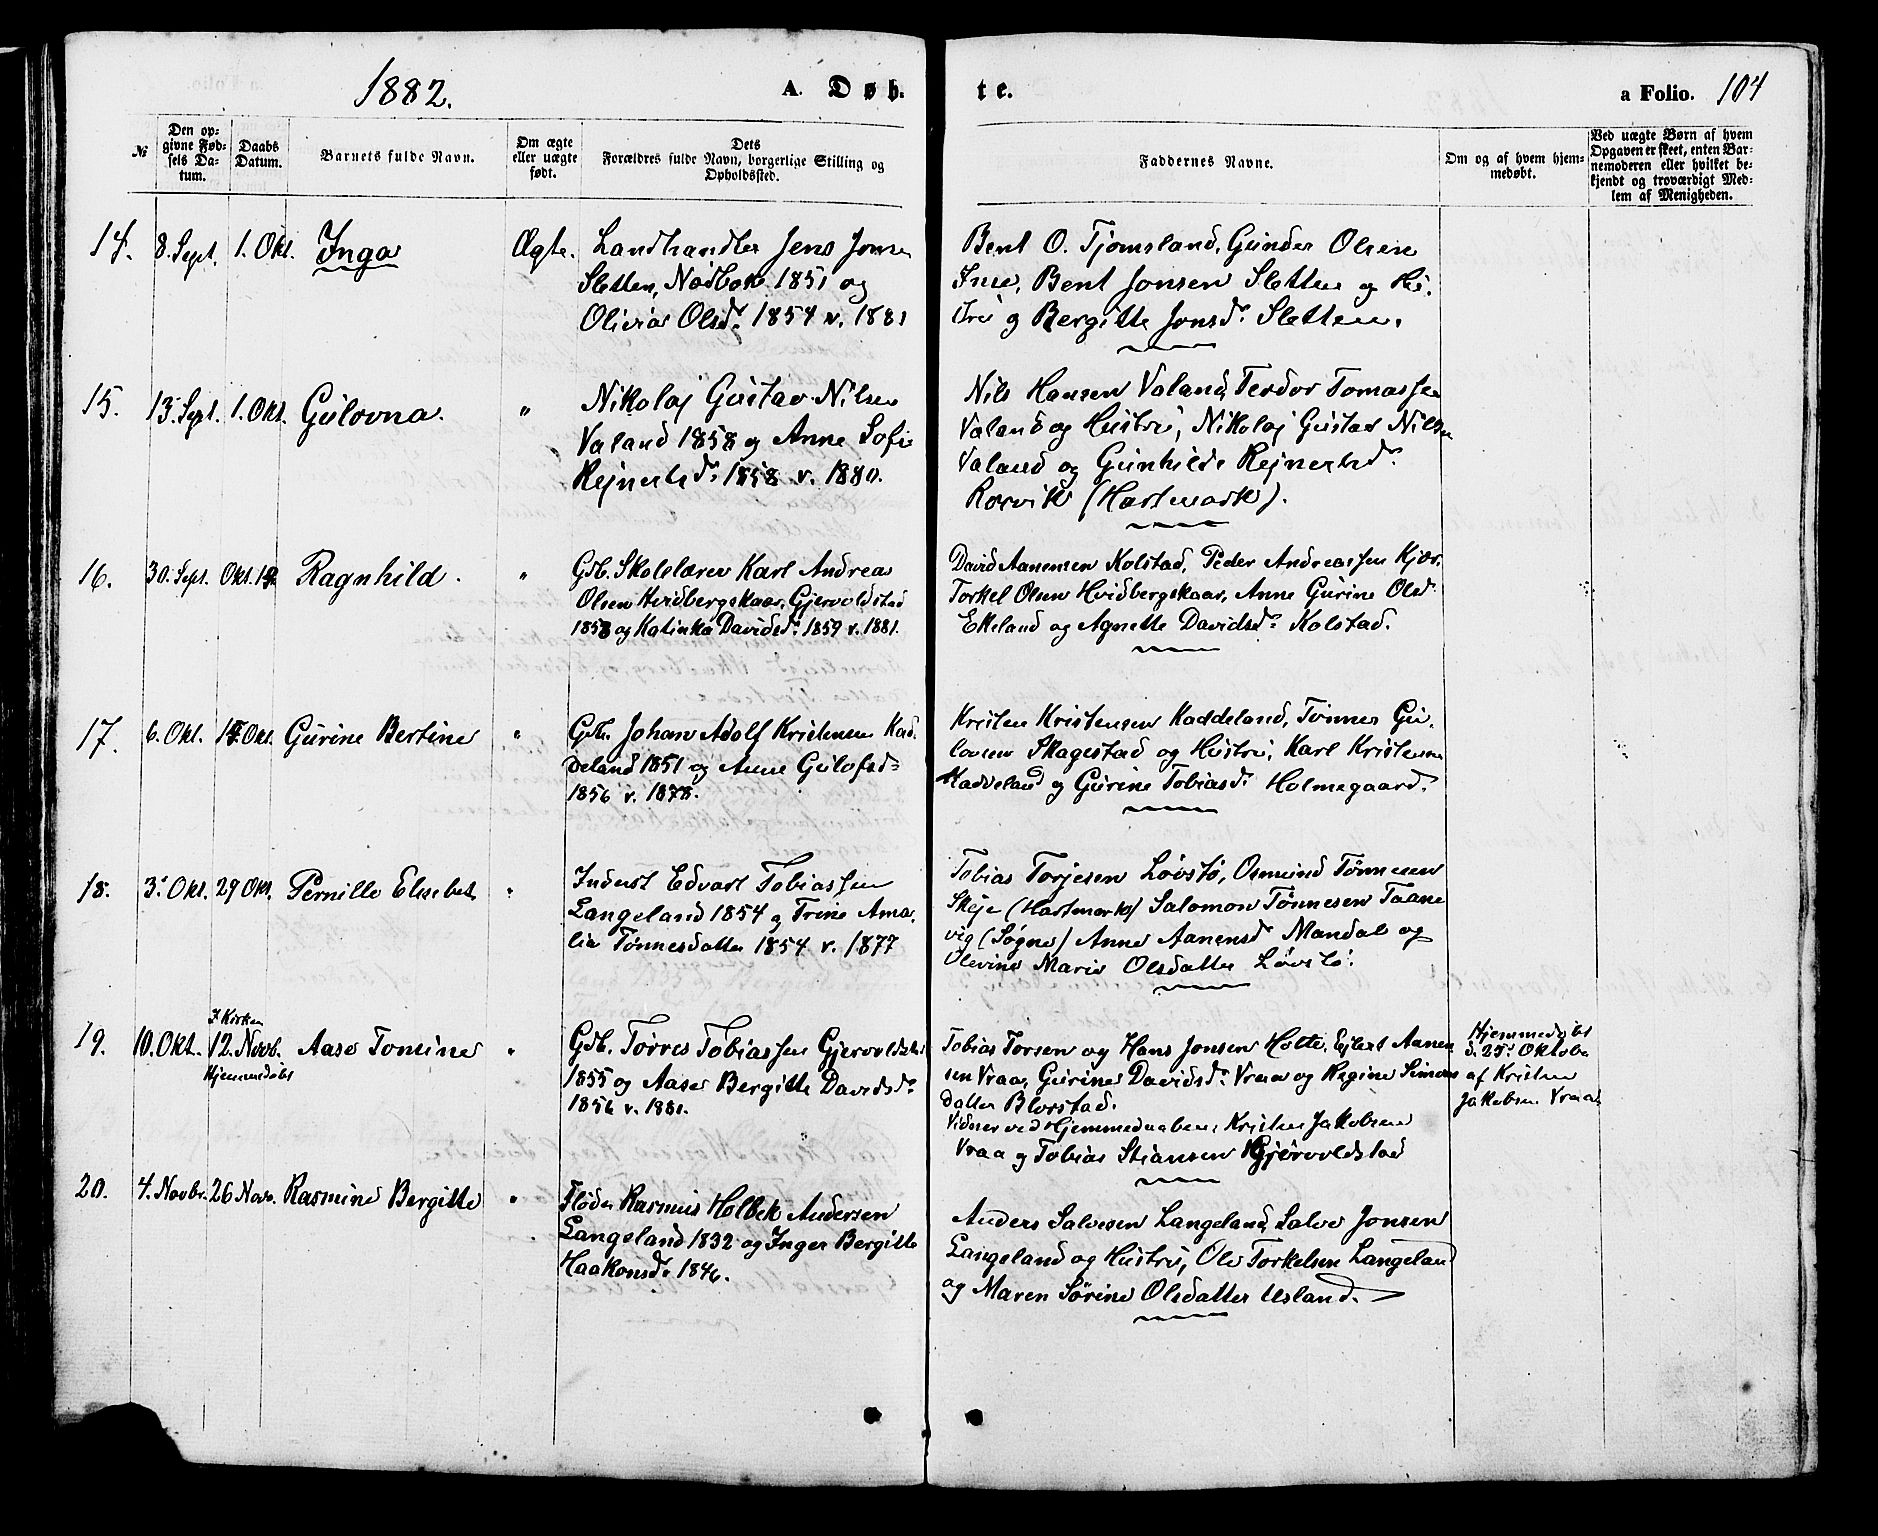 1882.
A. Døb-
te.
a Folio. 104
№
Den op-
givne Fød-
sels Da-
tum.
Daabs
Datum.
Barnets fulde Navn.
Om ægte
eller uægte
født.
Dets
Forældres fulde Navn, borgerlige Stilling og
Opholdssted.
Faddernes Navne.
Om og af hvem hjem-
medøbt.
Ved uægte Børn af hvem
Opgaven er skeet, enten Bar-
nemoderen eller hvilket be-
kjendt og troværdigt Med-
lem af Menigheden.
14. 8. Sept. 1. Okt. Inga Ægte.
Landhandler Jens Jonsen
Sletten, Nodbok 1851 og
Olivia Olsd. 1854 v. 1881
Bent O. Tjomsland, Gunder Olsen
Bent Jonsen Sletten og Hu-
stru og Bergitte Jonsd. Sletten.
15. 13. Sept. 1. Okt. Gulovna. "
Nikolaj Gustav Nilsen
Valand 1858 og Anne Sofie
Rejnertsd. 1858 v. 1880.
Nils Hansen Valand, Teodor Tomassen
Valand og Hustru, Nikolaj Gustav Nilsen
Valand og Gunhilde Rejnertsd.
Rorvik (Hartmark).
16. 30. Sept. Okt. Ragnhild. "
Gdb. Skolelærer Karl Andreas
Olsen Hvidbergskaar, Gjervoldstad
1858 og Katinka Davidsd. 1859 v. 1881.
David Aanensen Kolstad, Peder Andreassen Kjær,
Torkel Olsen Hvidbergskaar, Anne Gurine Olsd.
Ekeland og Agnette Davidsd. Kolstad.
17. 6. Okt. Okt. Gurine Bertine "
Gdb. Johan Adolf Kristensen Kad-
deland 1851 og Anne Gulofsd.
1856 v. 1878.
Kristen Kristensen Kaddeland, Tønnes Gu-
lovsen Skagestad og Hustru, Karl Kristensen
Kaddeland og Gurine Tobiasd. Holmegaard.
18. 3. Okt. 29 Okt. Pernille Elisabet "
Inderst Edvart Tobiassen
Langeland 1854 og Trine Ama-
lia Tønnesdatter 1854 v. 1877
Tobias Torjesen Løvstø, Osmund Tønnesen
Skeje (Hartmark) Salomon Tønnesen Taane
vig (Søgne) Anne Aanensd. Mandal og
Olevine Marie Olsdatter Løvstø.
I Kirken
19. 10. Okt. 12. Novb. Aase Tomine "
Hjemmedøbt
Gdb. Torres Tobiassen Gjervoldstad
1855 og Aase Bergitte Davidsd.
1856 v. 1881.
Tobias Torsen og Hans Jonsen Holte, Ejlert Aanen
sen Vraa, Gurine Davidsd. Vraa og Regine Simons
datter Blorstad.
Vidner ved Hjemmedaaben, Kristen Jakobsen
Vraa og Tobias Stiansen Gjervoldstad
Hjemmedøbt
d. 25. Oktober
af Kristen
Jakobsen Vraa
20. 4. Novbr. 26 Nov. Rasmine Bergitte "
Fløder Rasmus Holbek Andersen
Langeland 1832 og Inger Bergitte
Haakonsd. 1846.
Anders Salvesen Langeland, Salve Jonsen
Langeland og Hustru, Ole Torkelsen Langeland
og Maren Sørine Olsdatter Usland.